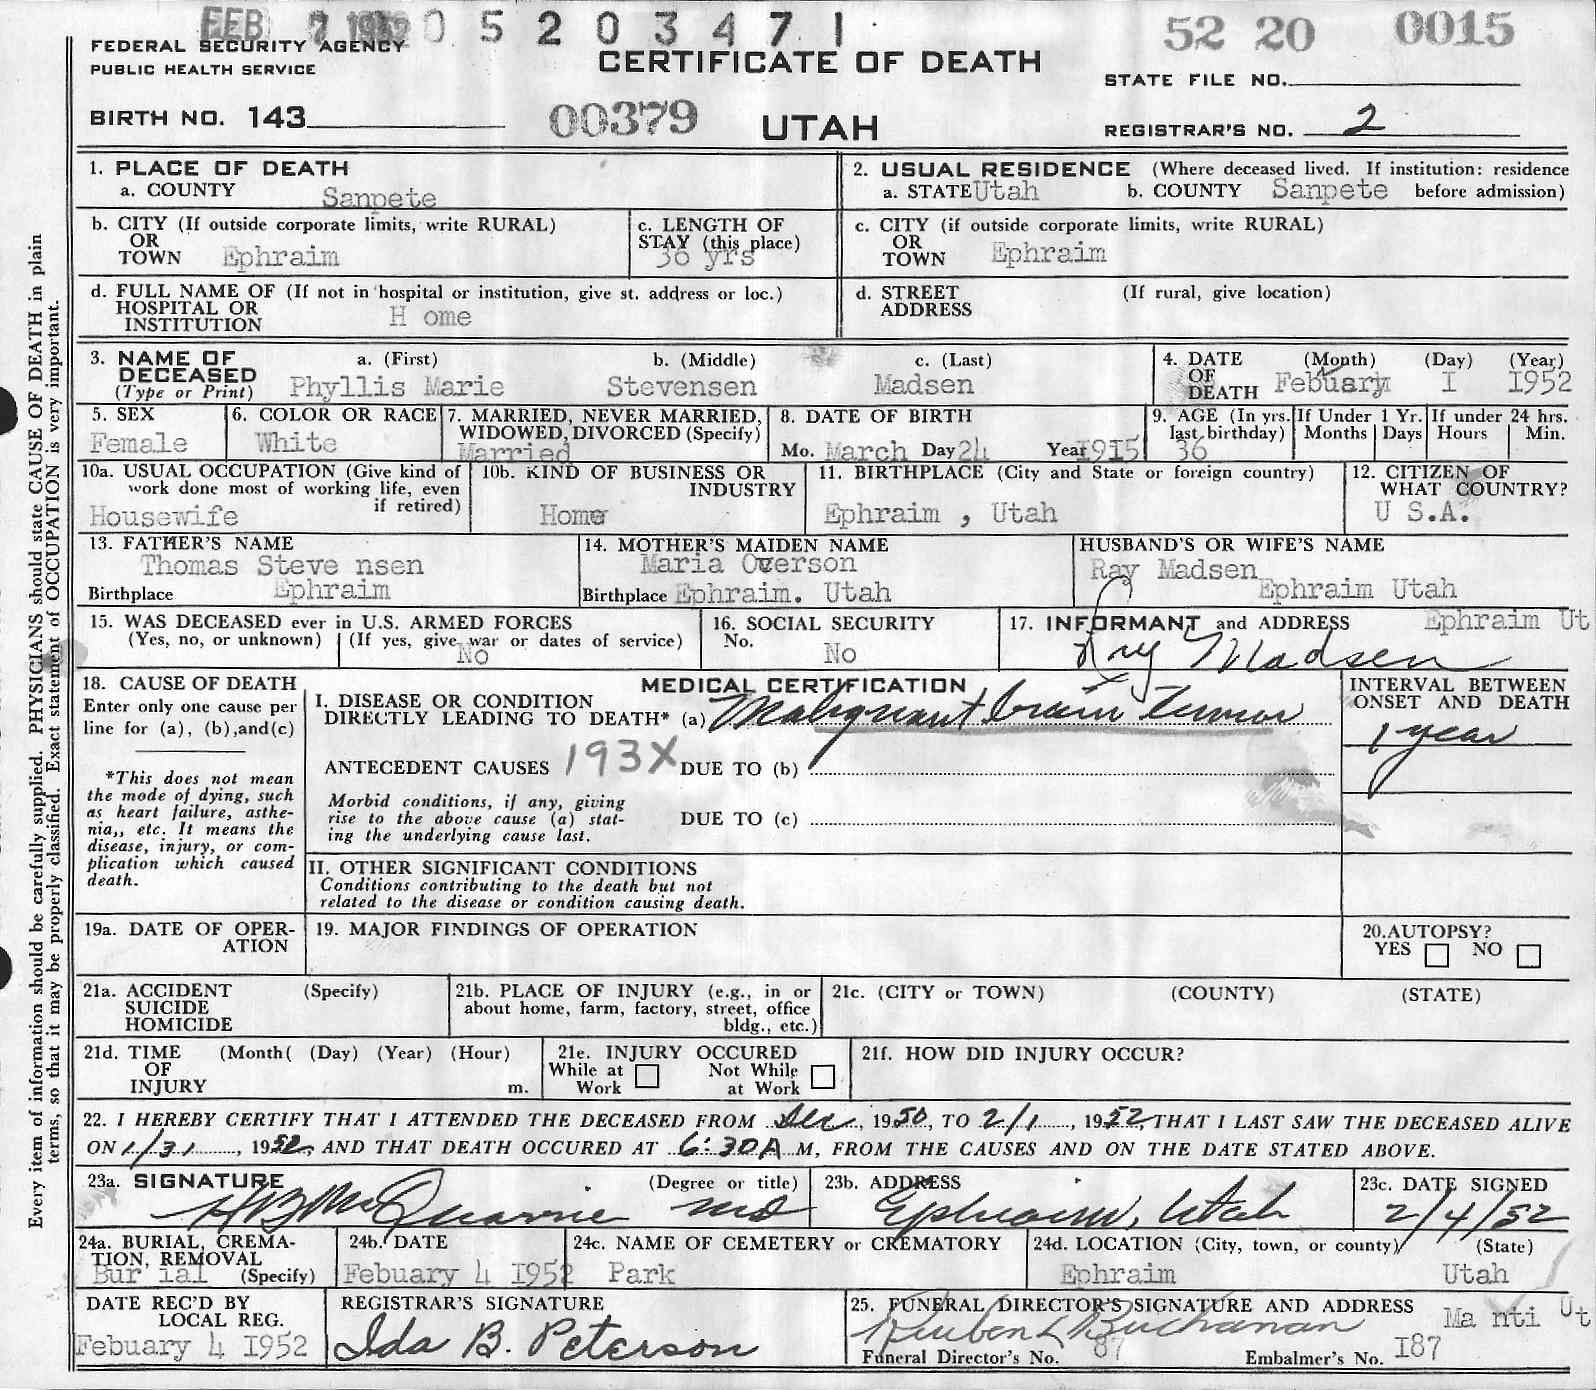 FEB 7 1952 0 5 2 0 3 4 7 1 52 20 0015
FEDERAL SECURITY AGENCY
PUBLIC HEALTH SERVICE
CERTIFICATE OF DEATH
STATE FILE NO.
BIRTH NO. 143 00379 UTAH REGISTRAR'S NO. 2
1. PLACE OF DEATH
a. COUNTY Sanpete
2. USUAL RESIDENCE (Where deceased lived. If institution: residence
a. STATE Utah b. COUNTY Sanpete before admission)
b. CITY (If outside corporate limits, write RURAL)
OR
TOWN Ephraim
c. LENGTH OF
STAY (this place)
36 yrs
c. CITY (if outside corporate limits, write RURAL)
OR
TOWN Ephraim
d. FULL NAME OF (If not in hospital or institution, give st. address or loc.)
HOSPITAL OR
INSTITUTION H ome
d. STREET (If rural, give location)
ADDRESS
3. NAME OF
DECEASED
(Type or Print)
a. (First) b. (Middle) c. (Last)
Phyllis Marie Stevensen Madsen
4. DATE (Month) (Day) (Year)
OF
DEATH Febuary I I952
5. SEX
Female
6. COLOR OR RACE
White
7. MARRIED, NEVER MARRIED,
WIDOWED, DIVORCED (Specify)
Married
8. DATE OF BIRTH
Mo. March Day 24 Year I9I5
9. AGE (In yrs.
last birthday)
36
If Under 1 Yr.
Months Days
If under 24 hrs.
Hours Min.
10a. USUAL OCCUPATION (Give kind of
work done most of working life, even
if retired)
Housewife
10b. KIND OF BUSINESS OR
INDUSTRY
Home
11. BIRTHPLACE (City and State or foreign country)
Ephraim , Utah
12. CITIZEN OF
WHAT COUNTRY?
U S.A.
13. FATHER'S NAME
Thomas Steve nsen
Birthplace Ephraim
14. MOTHER'S MAIDEN NAME
Maria Overson
Birthplace Ephraim. Utah
HUSBAND'S OR WIFE'S NAME
Ray Madsen
Ephraim Utah
15. WAS DECEASED ever in U.S. ARMED FORCES
(Yes, no, or unknown) (If yes, give war or dates of service)
No
16. SOCIAL SECURITY
No.
No
17. INFORMANT and ADDRESS Ephraim Ut
Ray Madsen
18. CAUSE OF DEATH
Enter only one cause per
line for (a), (b),and(c)
*This does not mean
the mode of dying, such
as heart failure, asthe-
nia,, etc. It means the
disease, injury, or com-
plication which caused
death.
MEDICAL CERTIFICATION
I. DISEASE OR CONDITION
DIRECTLY LEADING TO DEATH* (a) Malignant brain tumor
ANTECEDENT CAUSES 193X DUE TO (b)
Morbid conditions, if any, giving
rise to the above cause (a) stat-
ing the underlying cause last.
DUE TO (c)
INTERVAL BETWEEN
ONSET AND DEATH
1 year
II. OTHER SIGNIFICANT CONDITIONS
Conditions contributing to the death but not
related to the disease or condition causing death.
19a. DATE OF OPER-
ATION
19. MAJOR FINDINGS OF OPERATION
20.AUTOPSY?
YES NO
21a. ACCIDENT (Specify)
SUICIDE
HOMICIDE
21b. PLACE OF INJURY (e.g., in or
about home, farm, factory, street, office
bldg., etc.)
21c. (CITY or TOWN) (COUNTY) (STATE)
21d. TIME (Month( (Day) (Year) (Hour)
OF
INJURY m.
21e. INJURY OCCURED
While at Not While
Work at Work
21f. HOW DID INJURY OCCUR?
22. I HEREBY CERTIFY THAT I ATTENDED THE DECEASED FROM Dec, 1950, TO 2/1, 1952, THAT I LAST SAW THE DECEASED ALIVE
ON 1/31, 1952, AND THAT DEATH OCCURED AT 6:30A M, FROM THE CAUSES AND ON THE DATE STATED ABOVE.
23a. SIGNATURE (Degree or title)
McQuarrie MD
23b. ADDRESS
Ephraim, Utah
23c. DATE SIGNED
2/4/52
24a. BURIAL, CREMA-
TION, REMOVAL
Bur ial (Specify)
24b. DATE
Febuary 4 I952
24c. NAME OF CEMETERY or CREMATORY
Park
24d. LOCATION (City, town, or county) (State)
Ephraim Utah
DATE REC'D BY
LOCAL REG.
Febuary 4 I952
REGISTRAR'S SIGNATURE
Ida B. Peterson
25. FUNERAL DIRECTOR'S SIGNATURE AND ADDRESS Ma nti Ut
Reuben L Buchanan
Funeral Director's No. 87 Embalmer's No. I87
Every item of information should be carefully supplied. PHYSICIANS should state CAUSE OF DEATH in plain
terms, so that it may be properly classified. Exact statement of OCCUPATION is very important.